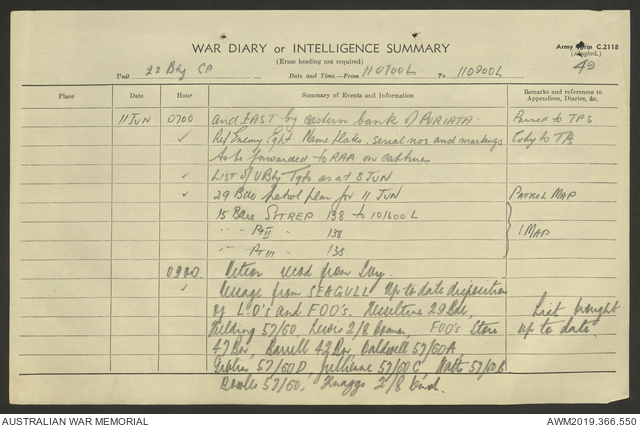 WAR DIARY or INTELLIGENCE SUMMARY
Army Form C.2118
(adapted.)
(Erase heading not required)
49
Unit 22 Bty CP Date and Time.—From 110700L To 110900L
Place Date Hour Summary of Events and Information Remarks and references to Appendices, Diaries, &c.
11 JUN 0700 and EAST by eastern bank of PURIATA. Passed to TPS
✓ Ref Enemy Eqpt Name plates, serial nos and markings Copy to TPS
to be forwarded to RAA on capture
✓ LIST of U Bty Tgts as at 8 JUN
✓ 29 Bde patrol plan for 11 JUN PATROL MAP
15 Bde SITREP 138 to 101600L
" " Pt II " 138 1 MAP
" " Pt III " 138
0900. Meteor read from Svy.
✓ Message from SEAGULL Up to date disposition
of L.O's and FOO's. 29 Bde, List brought
57/60 2/8 FOO's up to date.
42 Bty 42 Baldwell 57/60 A
57/60 D, 57/60 C, 57/60 B
Bowles 57/60. Knaggs 2/8
AUSTRALIAN WAR MEMORIAL AWM2019.366.550